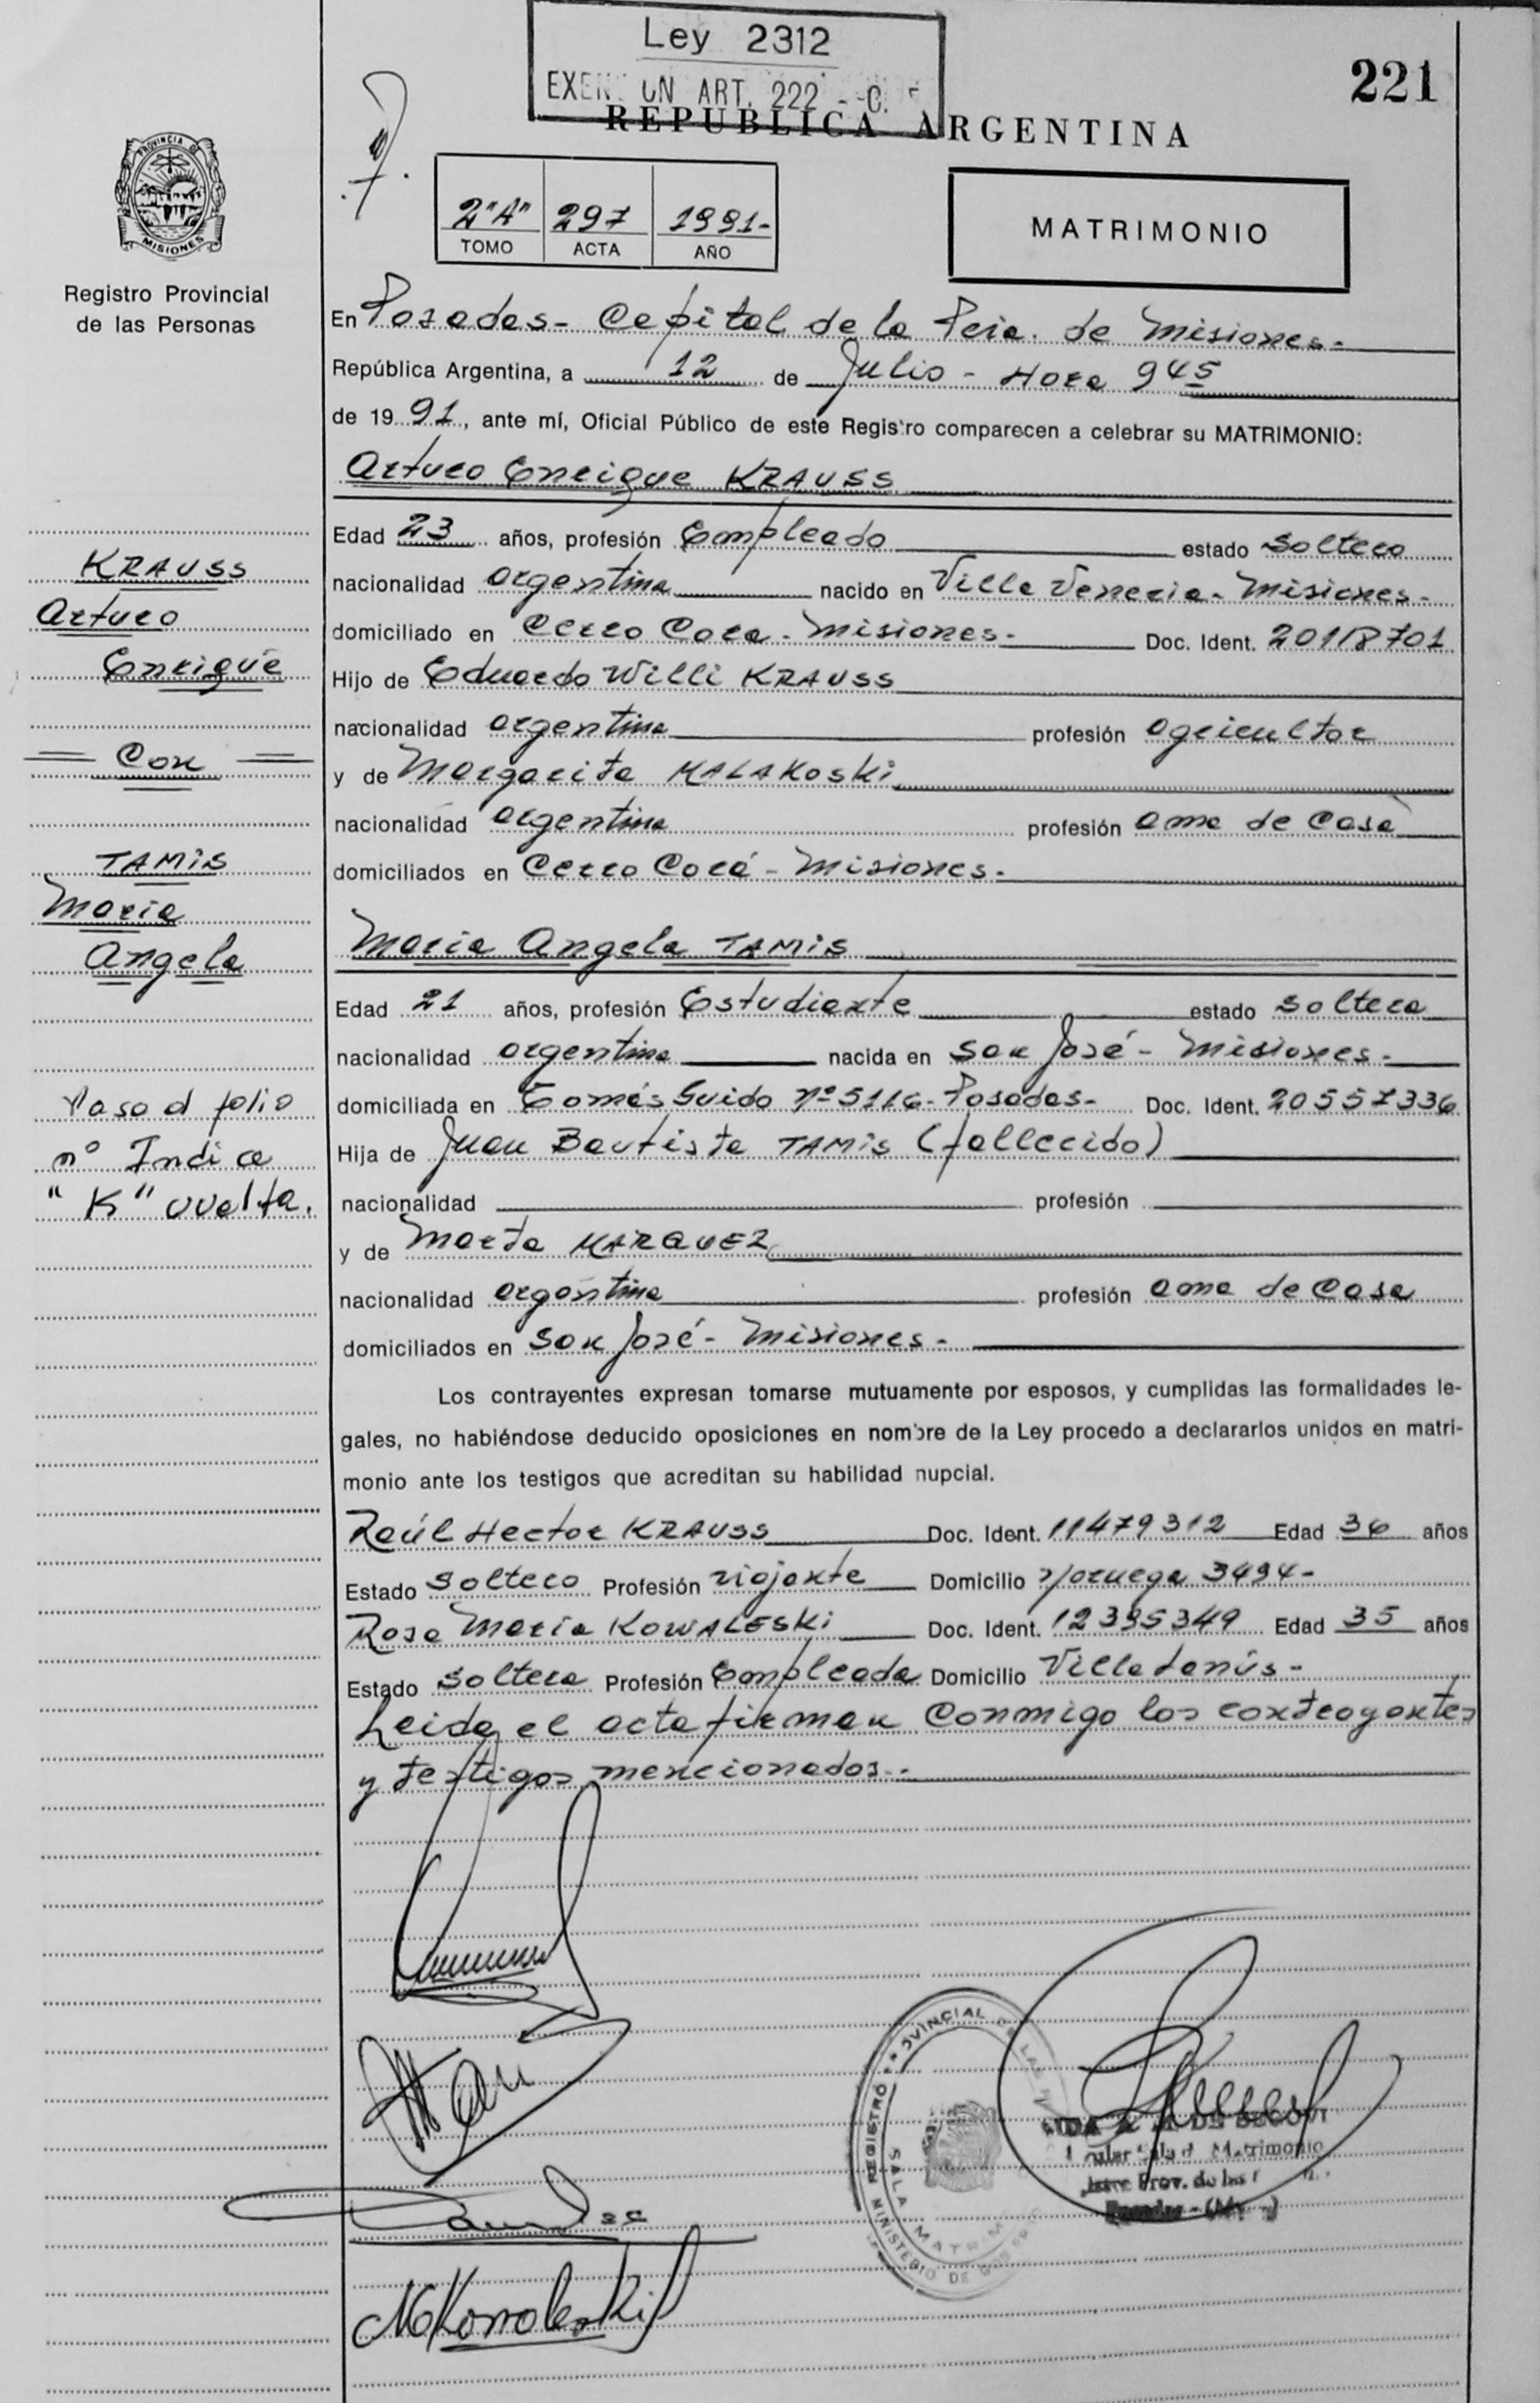 Ley 2312
ART. 222
221
REPUBLICA ARGENTINA
PROVINCIA DE
MISIONES
Registro Provincial
de las Personas
2"A" 297 1991-
TOMO ACTA AÑO
MATRIMONIO
En Posadas- Capital de la Pcia. de Misiones-
República Argentina, a 12 de Julio - Hora 945
de 1991, ante mí, Oficial Público de este Registro comparecen a celebrar su MATRIMONIO:
Arturo Enrique KRAUSS
Edad 23 años, profesión Empleado estado soltero
nacionalidad argentina nacido en Villa Venecia- Misiones-
domiciliado en Cerro Cora - Misiones- Doc. Ident. 20118701
Hijo de Eduardo Willi KRAUSS
nacionalidad argentina profesión agricultor
y de Margarita MALAKoski
nacionalidad argentina profesión ama de casa
domiciliados en Cerro Corá - Misiones-
KRAUSS
Arturo
Enrique
= Con =
TAMIS
Maria
Angela
Maria Angela TAMIS
Edad 21 años, profesión Estudiante estado soltera
nacionalidad argentina nacida en San José - Misiones-
domiciliada en Tomás Guido Nº 5116- Posadas- Doc. Ident. 20557336
Hija de Juan Bautista TAMIS (fallecido)
nacionalidad profesión
y de Marta MARQUEZ
nacionalidad argentina profesión ama de casa
domiciliados en San José - Misiones-
Paso al folio
nº Indice
"K" vuelta.
Los contrayentes expresan tomarse mutuamente por esposos, y cumplidas las formalidades le-
gales, no habiéndose deducido oposiciones en nombre de la Ley procedo a declararlos unidos en matri-
monio ante los testigos que acreditan su habilidad nupcial.
Raúl Hector KRAUSS Doc. Ident. 11479312 Edad 36 años
Estado soltero Profesión viajante Domicilio Noruega 3494-
Rosa Maria KOWALESKi Doc. Ident. 12335349 Edad 35 años
Estado soltera Profesión Empleada Domicilio Villa Lanús-
Leida el acta firman conmigo los contrayentes
y testigos mencionados-.
REGISTRO PROVINCIAL DE LAS
SALA MATRIM
MINISTERIO DE
Matrimonio
Prov. de las